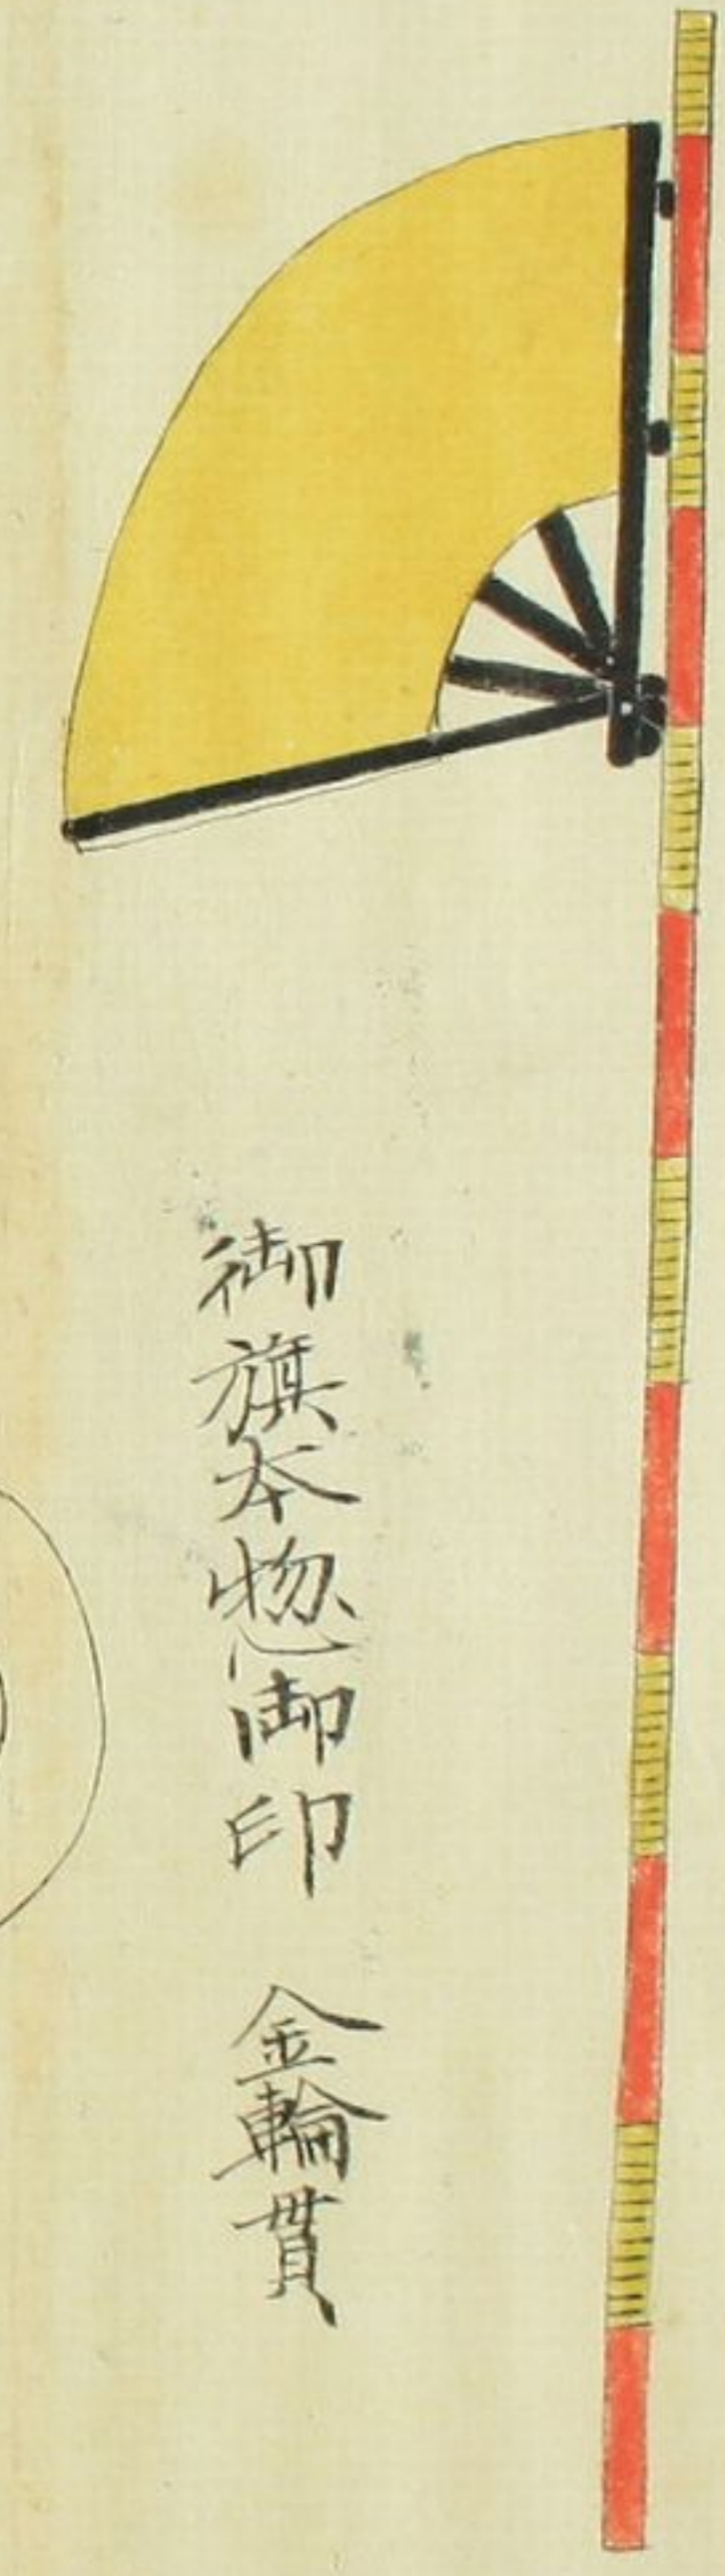 御旗本惣御印　金輪貫